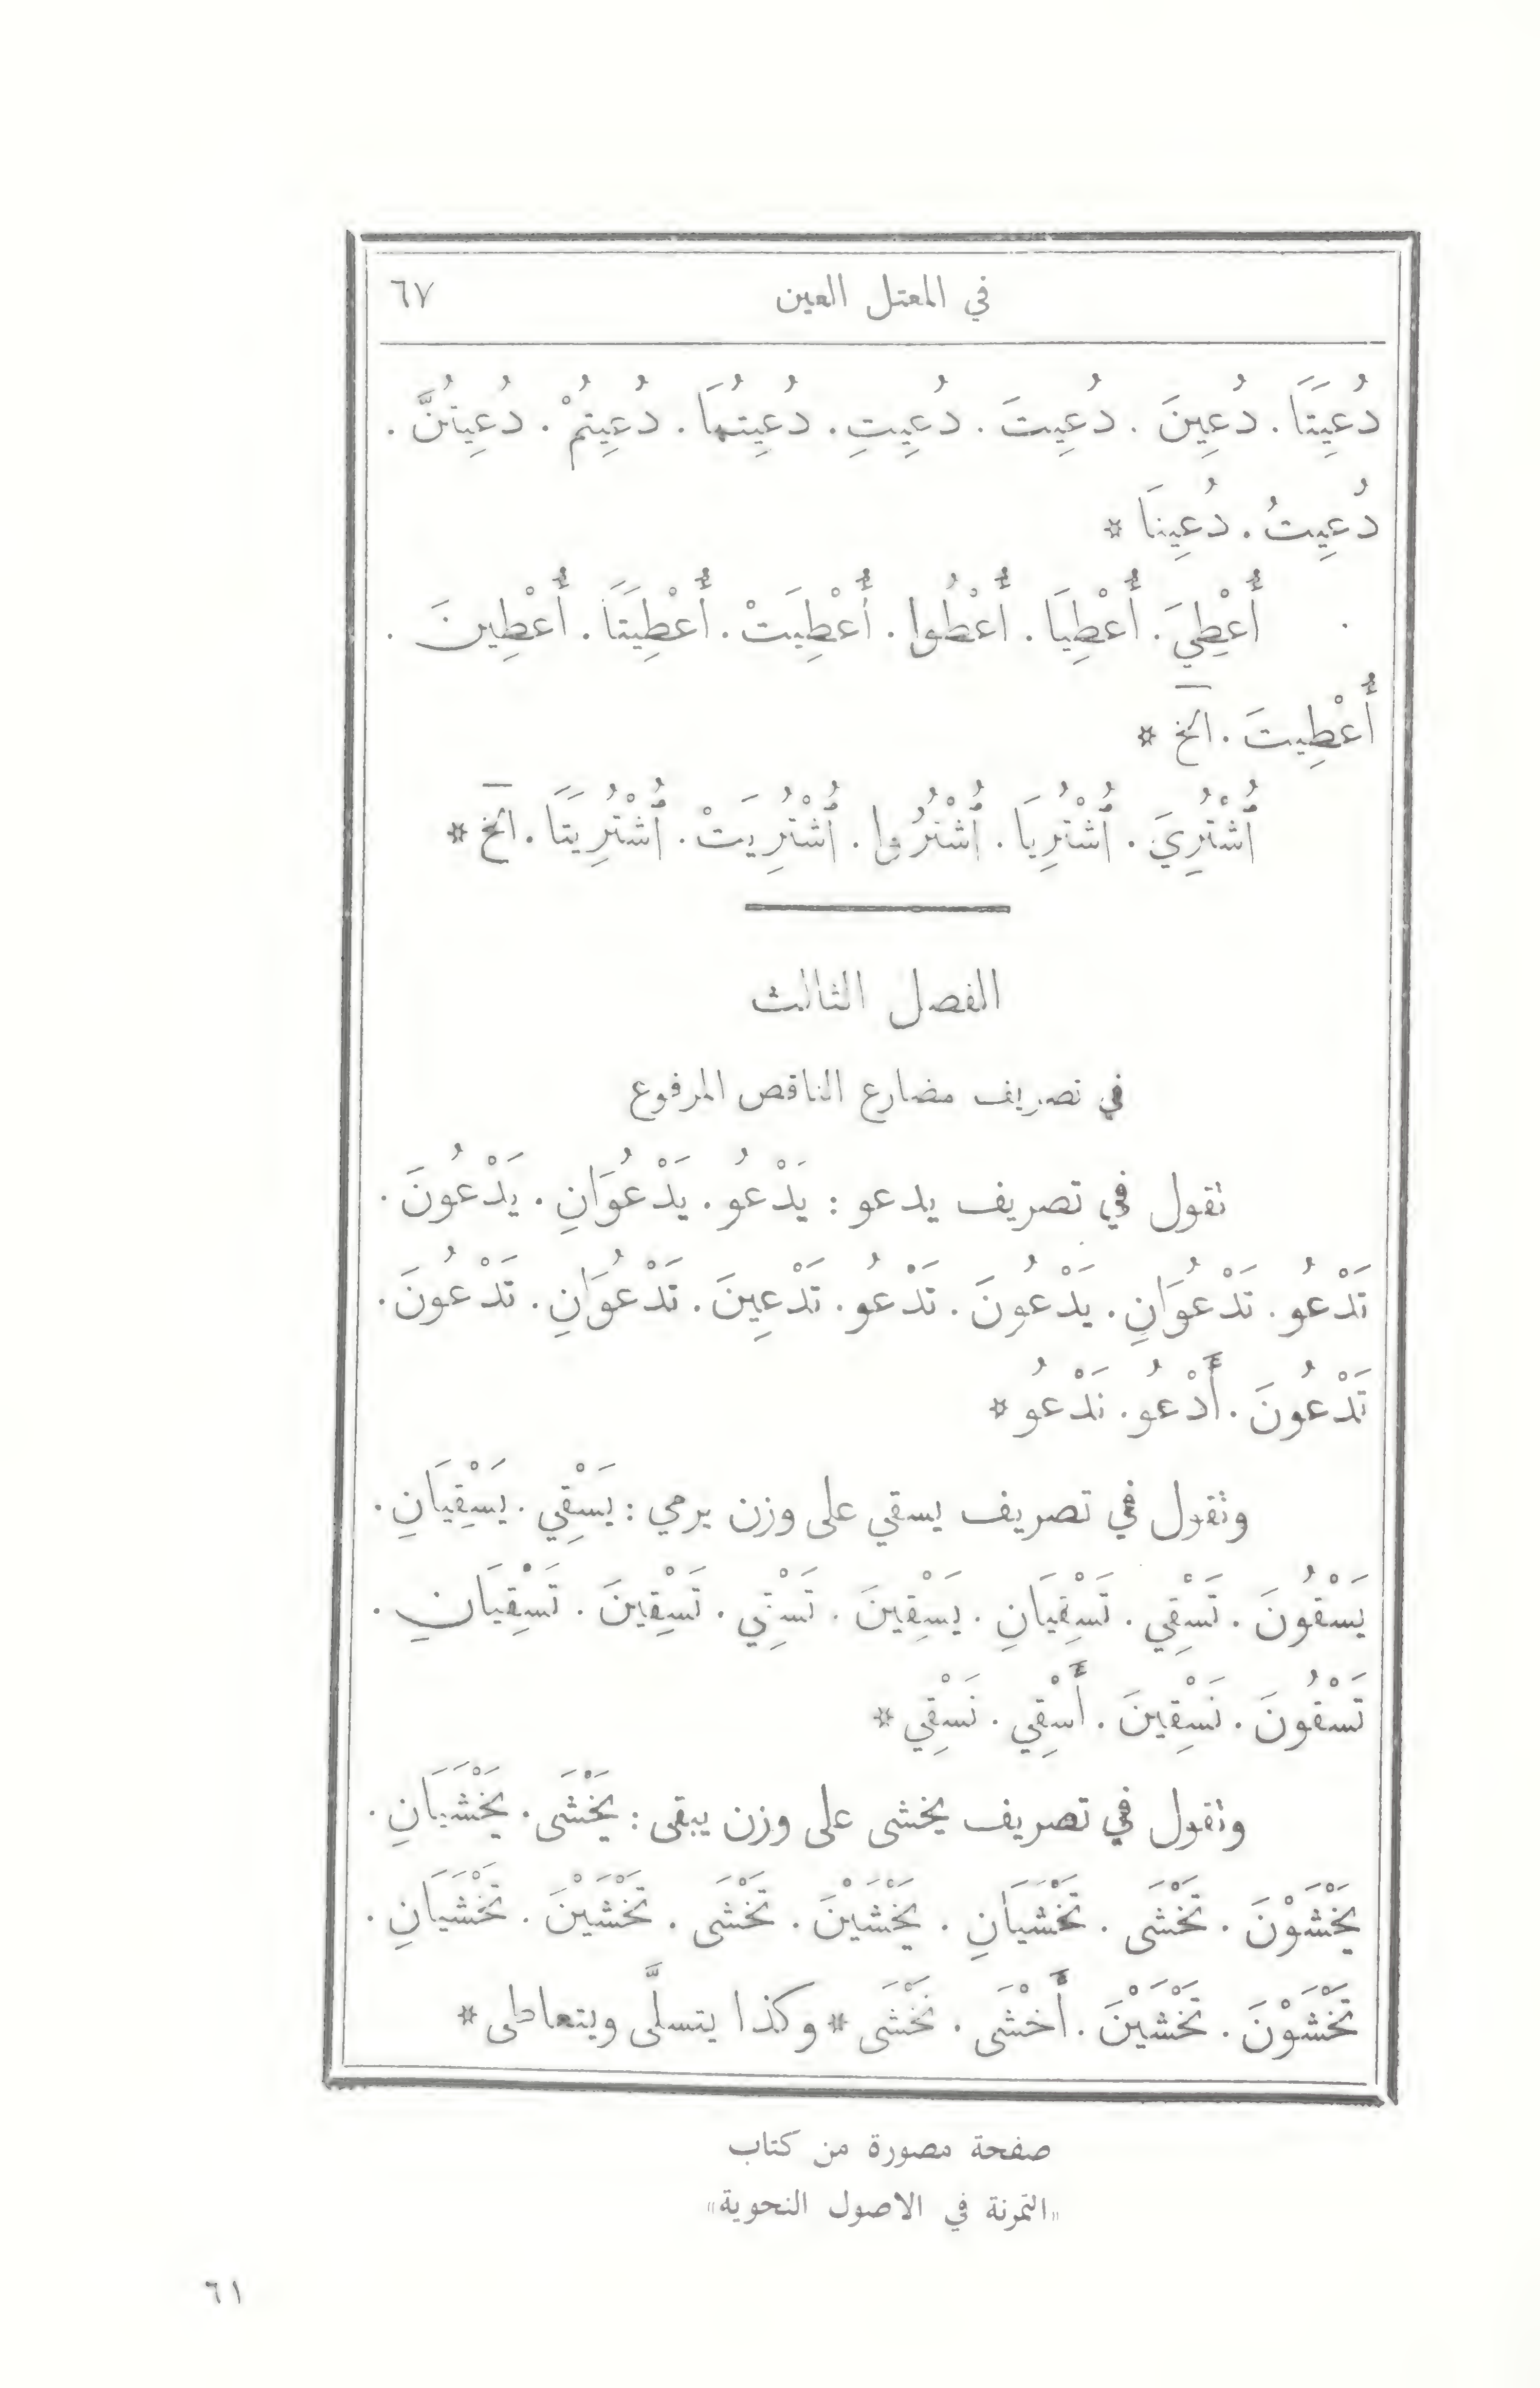 في المعتل العين ٦٧
دُعِيَتَا . دُعِينَ . دُعِيتَ . دُعِيتِ . دُعِيتُمَا . دُعِيتُمْ . دُعِيتُنَّ .
دُعِيتُ . دُعِينَا *
أُعْطِيَ . أُعْطِيَا . أُعْطُوا . أُعْطِيَتْ . أُعْطِيَتَا . أُعْطِينَ .
أُعْطِيتَ . الخ *
ٱشْتُرِيَ . ٱشْتُرِيَا . ٱشْتُرُوا . ٱشْتُرِيَتْ . ٱشْتُرِيَتَا . الخ *
الفصل الثالث
في تصريف مضارع الناقص المرفوع
نقول في تصريف يدعو : يَدْعُو . يَدْعُوَانِ . يَدْعُونَ .
تَدْعُو . تَدْعُوَانِ . يَدْعُونَ . تَدْعُو . تَدْعِينَ . تَدْعُوَانِ . تَدْعُونَ .
تَدْعُونَ . أَدْعُو . نَدْعُو *
ونقول في تصريف يسقي على وزن يرمي : يَسْقِي . يَسْقِيَانِ .
يَسْقُونَ . تَسْقِي . تَسْقِيَانِ . يَسْقِينَ . تَسْقِي . تَسْقِينَ . تَسْقِيَانِ .
تَسْقُونَ . تَسْقِينَ . أَسْقِي . نَسْقِي *
ونقول في تصريف يخشى على وزن يبقى : يَخْشَى . يَخْشَيَانِ .
يَخْشَوْنَ . تَخْشَى . تَخْشَيَانِ . يَخْشَيْنَ . تَخْشَى . تَخْشَيْنَ . تَخْشَيَانِ .
تَخْشَوْنَ . تَخْشَيْنَ . أَخْشَى . نَخْشَى * وكذا يتسلَّى ويتعاطى *
صفحة مصورة من كتاب
«التمرنة في الاصول النحوية»
٦١